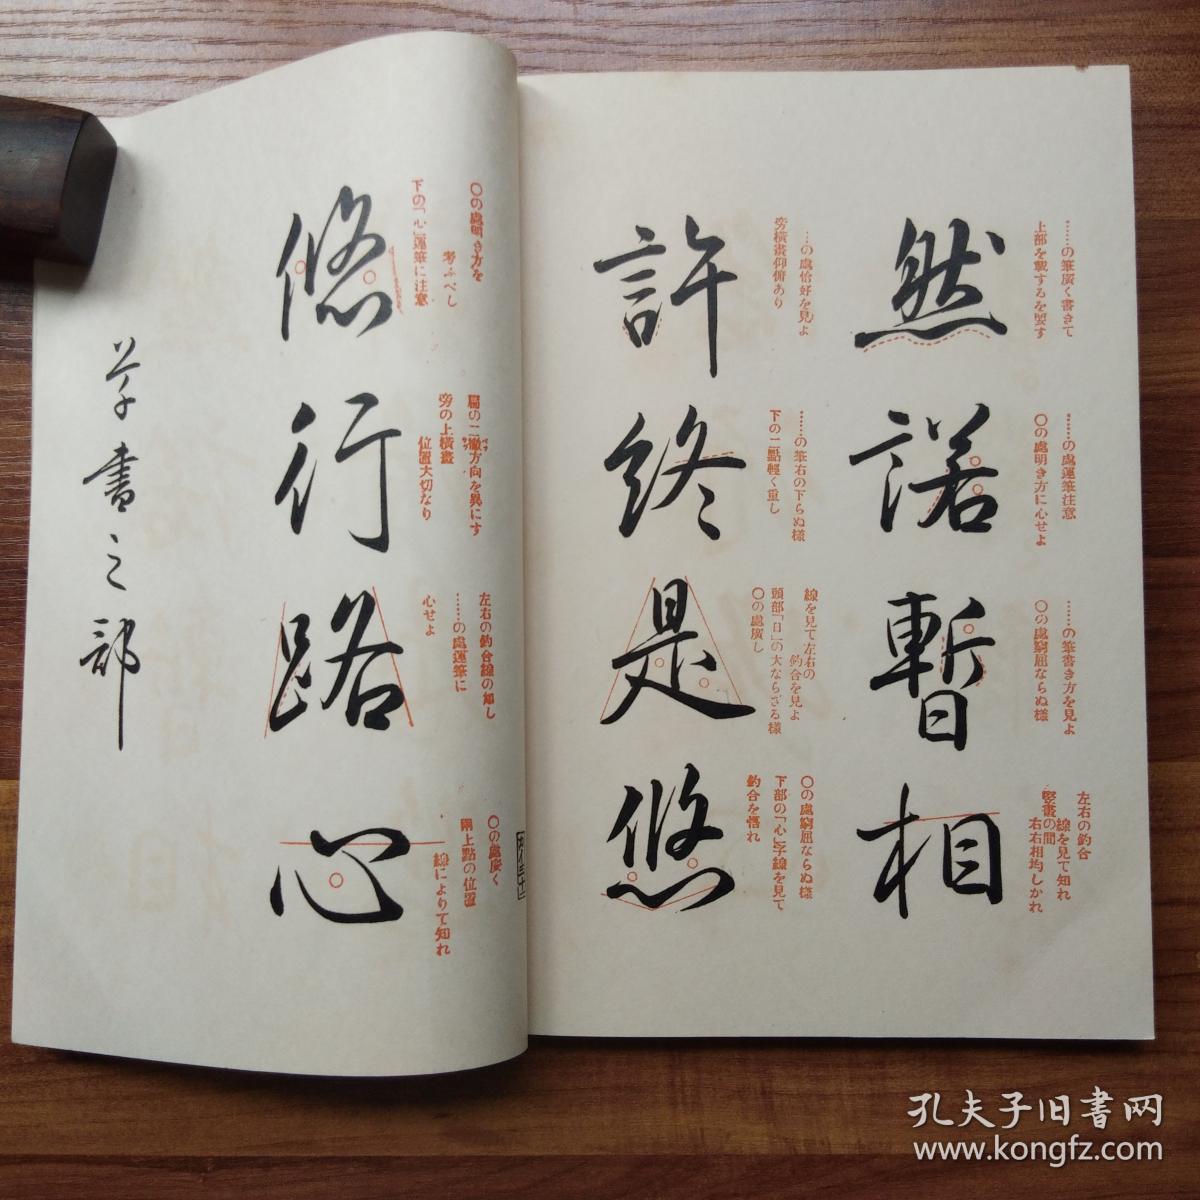 然諾暫相
……の筆廣く書きて
上部を載するを要す
……の處運筆注意
〇の處明き方に心せよ
……の筆書き方を見よ
〇の處窮屈ならぬ樣
左右の釣合
線を見て知れ
竪畫の間
右右相均しかれ
許終是悠
…の處恰好を見よ
旁橫畫仰俯あり
……の筆右の下らぬ樣
下の二點輕く重し
線を見て左右の
釣合を見よ
頭部「日」の大ならざる樣
〇の處廣し
〇の處窮屈ならぬ樣
下部の「心」字線を見て
釣合を悟れ
悠行路心
〇の處明き方を
考ふべし
下の「心」運筆に注意
扁の二撇方向を異にす
旁の上橫畫
位置大切なり
左右の釣合線の如し
……の處運筆に
心せよ
〇の處廣く
兩上點の位置
線によりて知れ
草書之部
孔夫子旧书网
www.kongfz.com